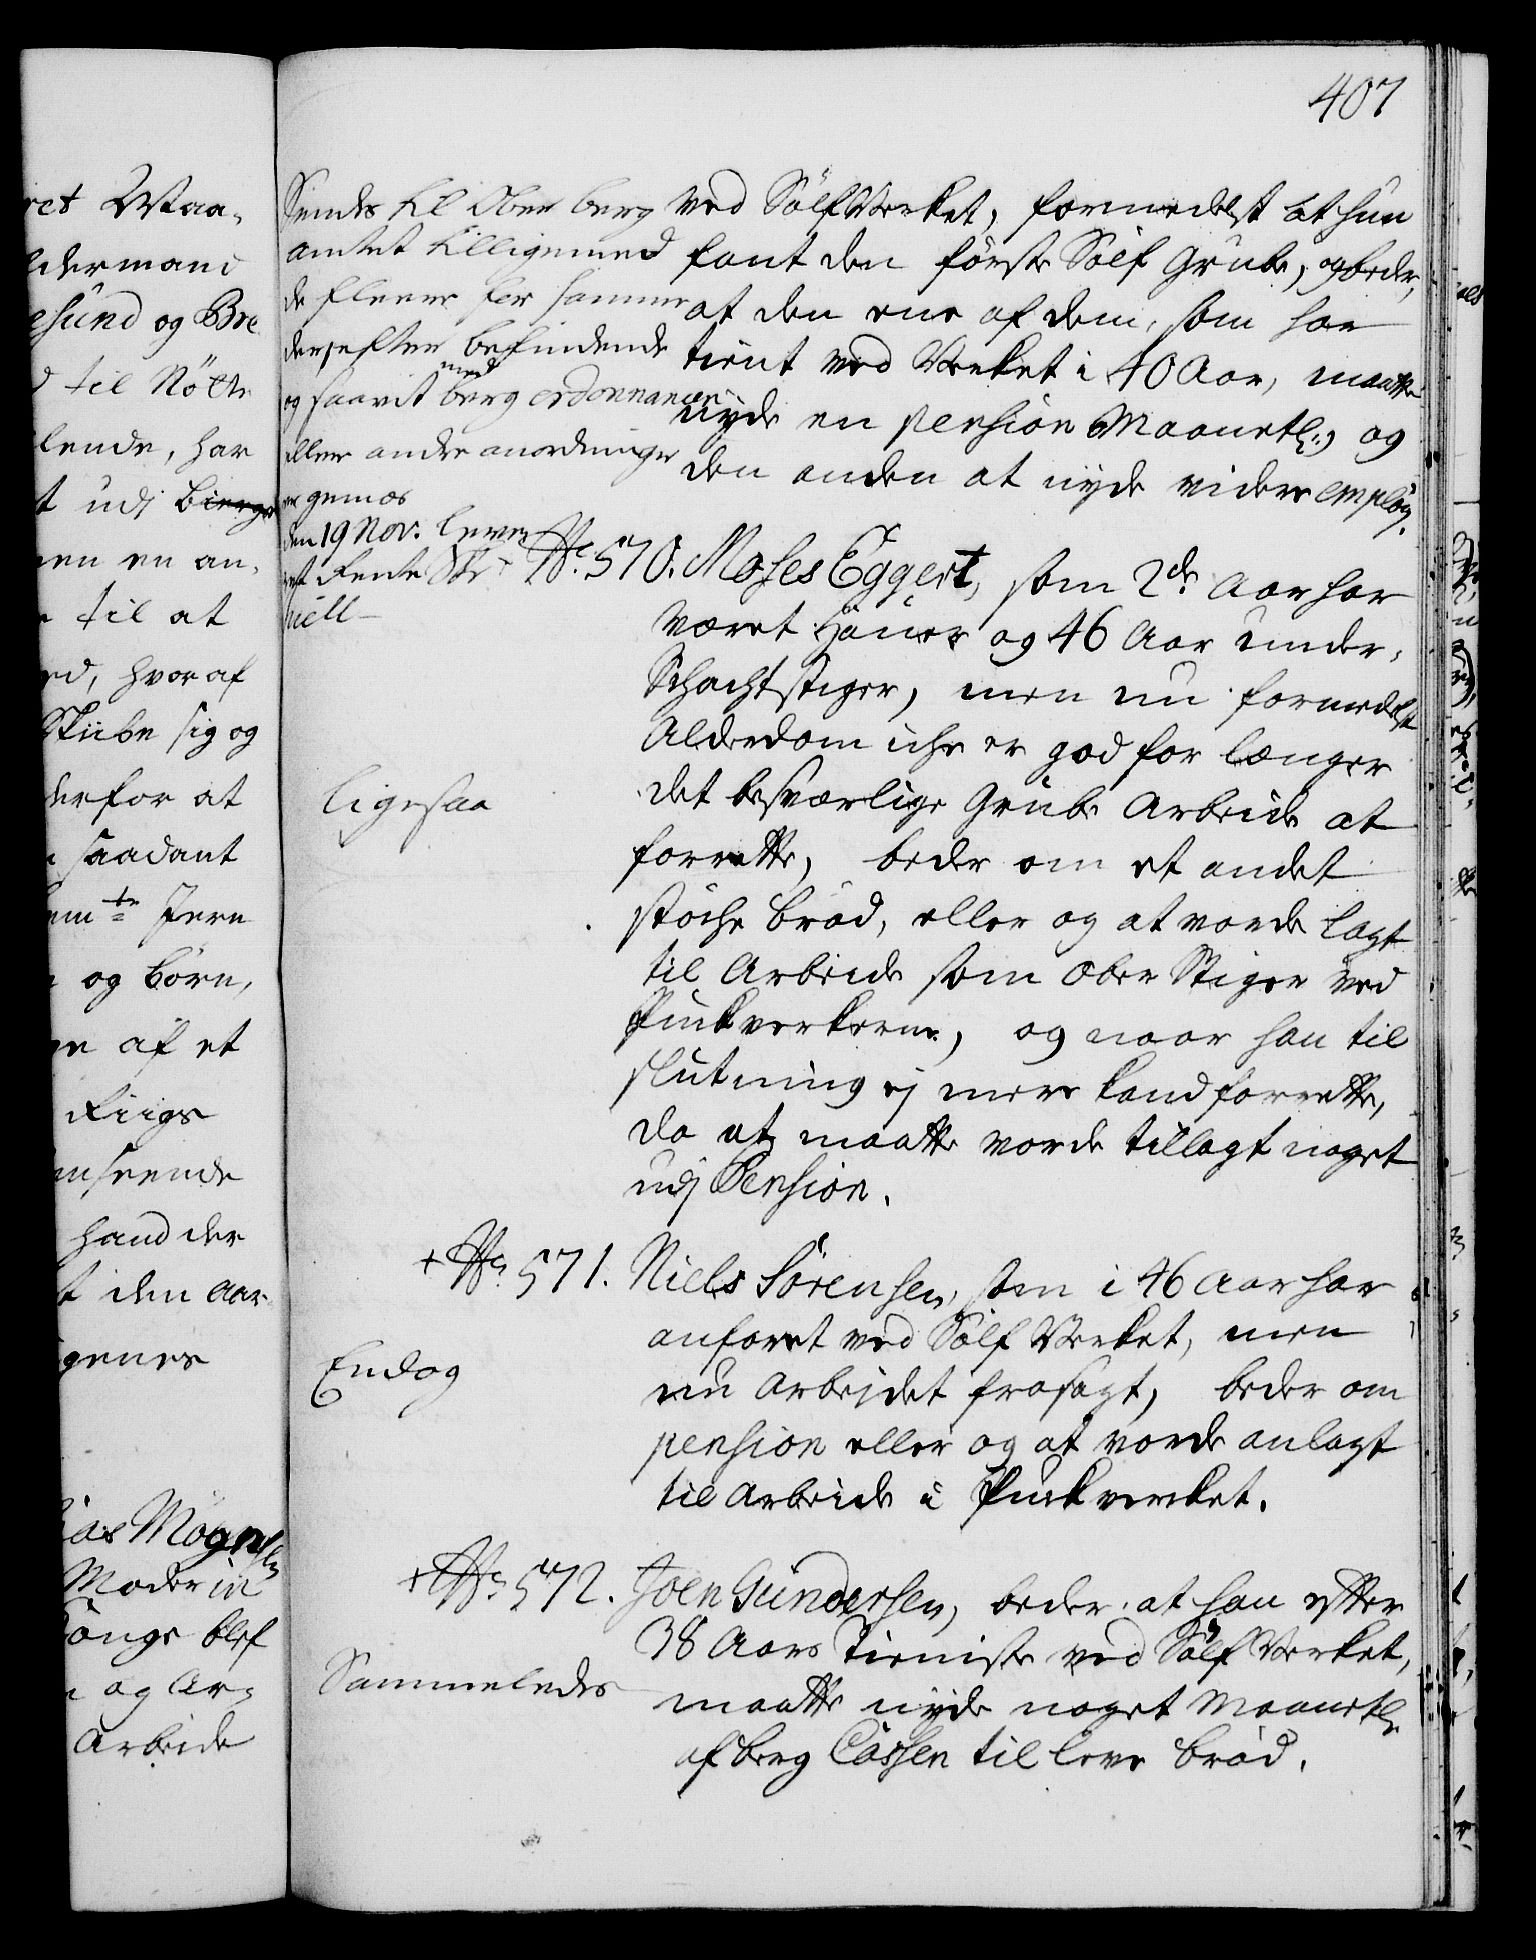 407
ret Waa-
ldermand
esund og Bre
d til Nötte
lende, har
t udj
nen en an-
til at
ed, hvoraf
Skiibe sig og
derfor at
saadant
em te Jern
og börn,
ge af et
Riigs
anseende
hand der
t den Aar
genes
ias Mognsen
Moder in
Konge blef
og Ar-
Arbeide
Sendes til Ober berg
amtet tilligemed
de fleere for samme
der efter befindende
og saavit med berg ordonnancen
eller andre anordninger
er gemæs
den 19 Nov. lever
et Rente Skr
ved Sölf Verket, formedelst at hun
fant den förste Sölf Grube, og beder,
at den ene af dem, som har
tient ved Verket i 40 Aar, maatte
nyde en pension Maanetl: og
den anden at nyde videre employ.
No. 570. Moses Eggert, som 2de Aar har
været Häuer og 46 Aar under-
Schachtstiger, men nu formedelst
Alderdom iche er god for længer
det besværlige Grube Arbeide at
forrette, beder om et andet
støche bröd, eller og at vorde lagt
til Arbeide som Ober Stiger ved
Puckverkerne, og naar han til
slutning ej mere kand forrette,
da at maatte vorde tillagt noget
udj Pension.
ligesaa
+ No. 571. Niels Sörensen, som i 46 Aar har
anfaret ved Sölf Verket, men
nu Arbejdet frasagt, beder om
pension eller og at vorde anlagt
til Arbeide i Puckverket.
Endog
+ No. 572. Joen Gundersen, beder at han efter
38 Aars Tieniste ved Sölf Verket,
maatte nyde noget Maanetl.
af berg Cassen til leve bröd.
Sammeledes